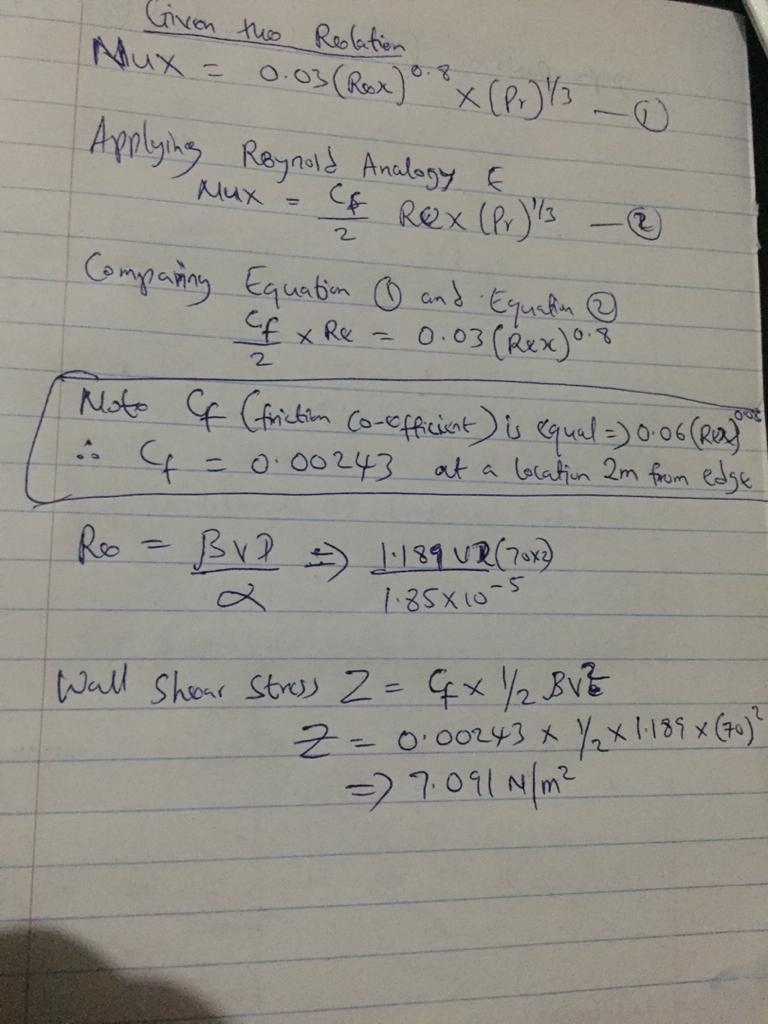 Given the Relation
Nux = 0.03(Rex)^0.8 × (Pr)^1/3 — ①
Applying Reynold Analogy E
Nux = Cf/2 Rex (Pr)^1/3 — ②
Comparing Equation ① and Equation ②
Cf/2 × Re = 0.03(Rex)^0.8
Note Cf (friction Co-efficient) is equal => 0.06(Rex)
∴ Cf = 0.00243 at a location 2m from edge
Re = BVD/α => 1.189 (70x2)/1.85×10^-5
Wall Shear Stress Z = Cf × 1/2 BV²
Z = 0.00243 × 1/2 × 1.189 × (70)²
=> 7.091 N/m²